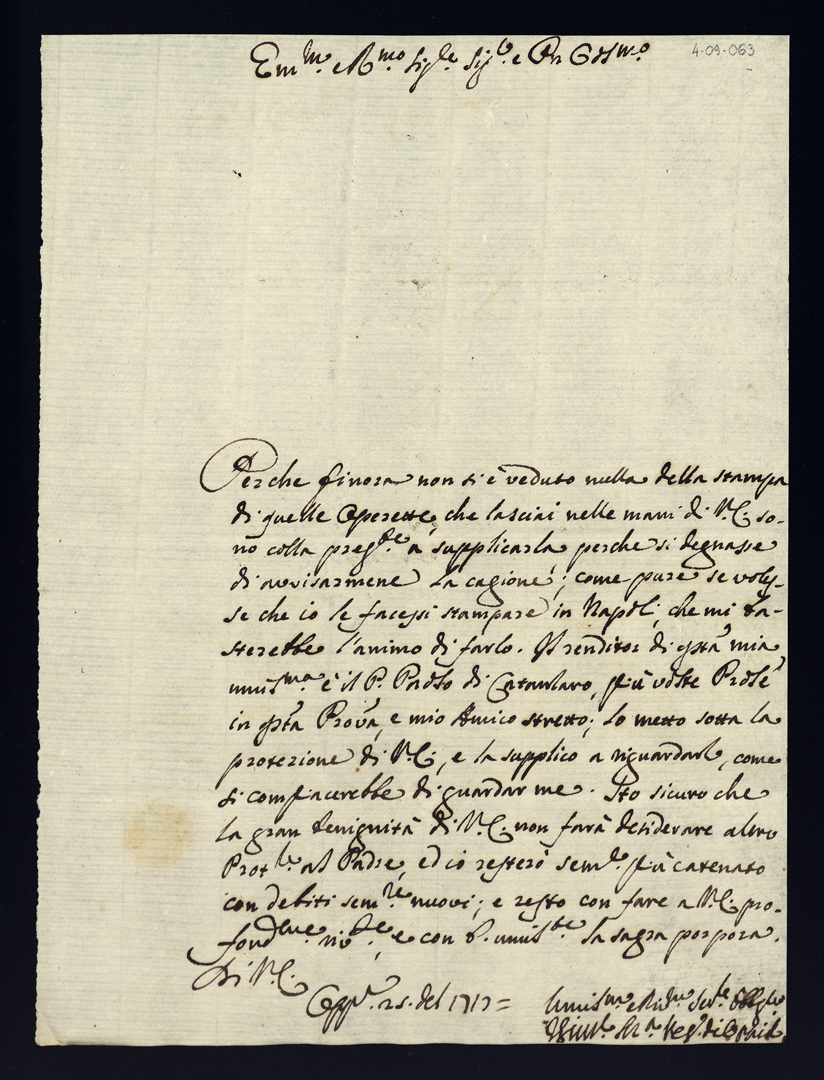 4-09-063
Em.mo e R.mo Sig.re Sig.e e Pn Col.mo
Perche finora non si è veduto nulla della stampa
di quelle Operette, che lasciai nelle mani di V.E. so-
no colla preg.te a supplicarla, perche si degnasse
di avvisarmene la cagione; come pure se voles-
se che io le facessi stampare in Napoli, che mi ba-
sterebbe l'animo di farlo. Il renditor di q.sta mia
umis.ma è il P. Paolo di più volte Prole
in q.sta Prov.a, e mio Amico stretto; lo metto sotto la
protezione di V.E., e la supplico a riguardarlo, come
si compiacerebbe di guardar me. Sto sicuro che
la gran benignità di V.E. non farà desiderare altro
Prot.re al Padre, ed io resterò sem.e più catenato
con debiti sem.re nuovi; e resto con fare a V.E. pro-
fond.me riv.ze, e con b. umil.te la sagra porpora.
Di V.E.
25. del 1717=
Umilis.mo e Div.mo Ser.re Obblig.o